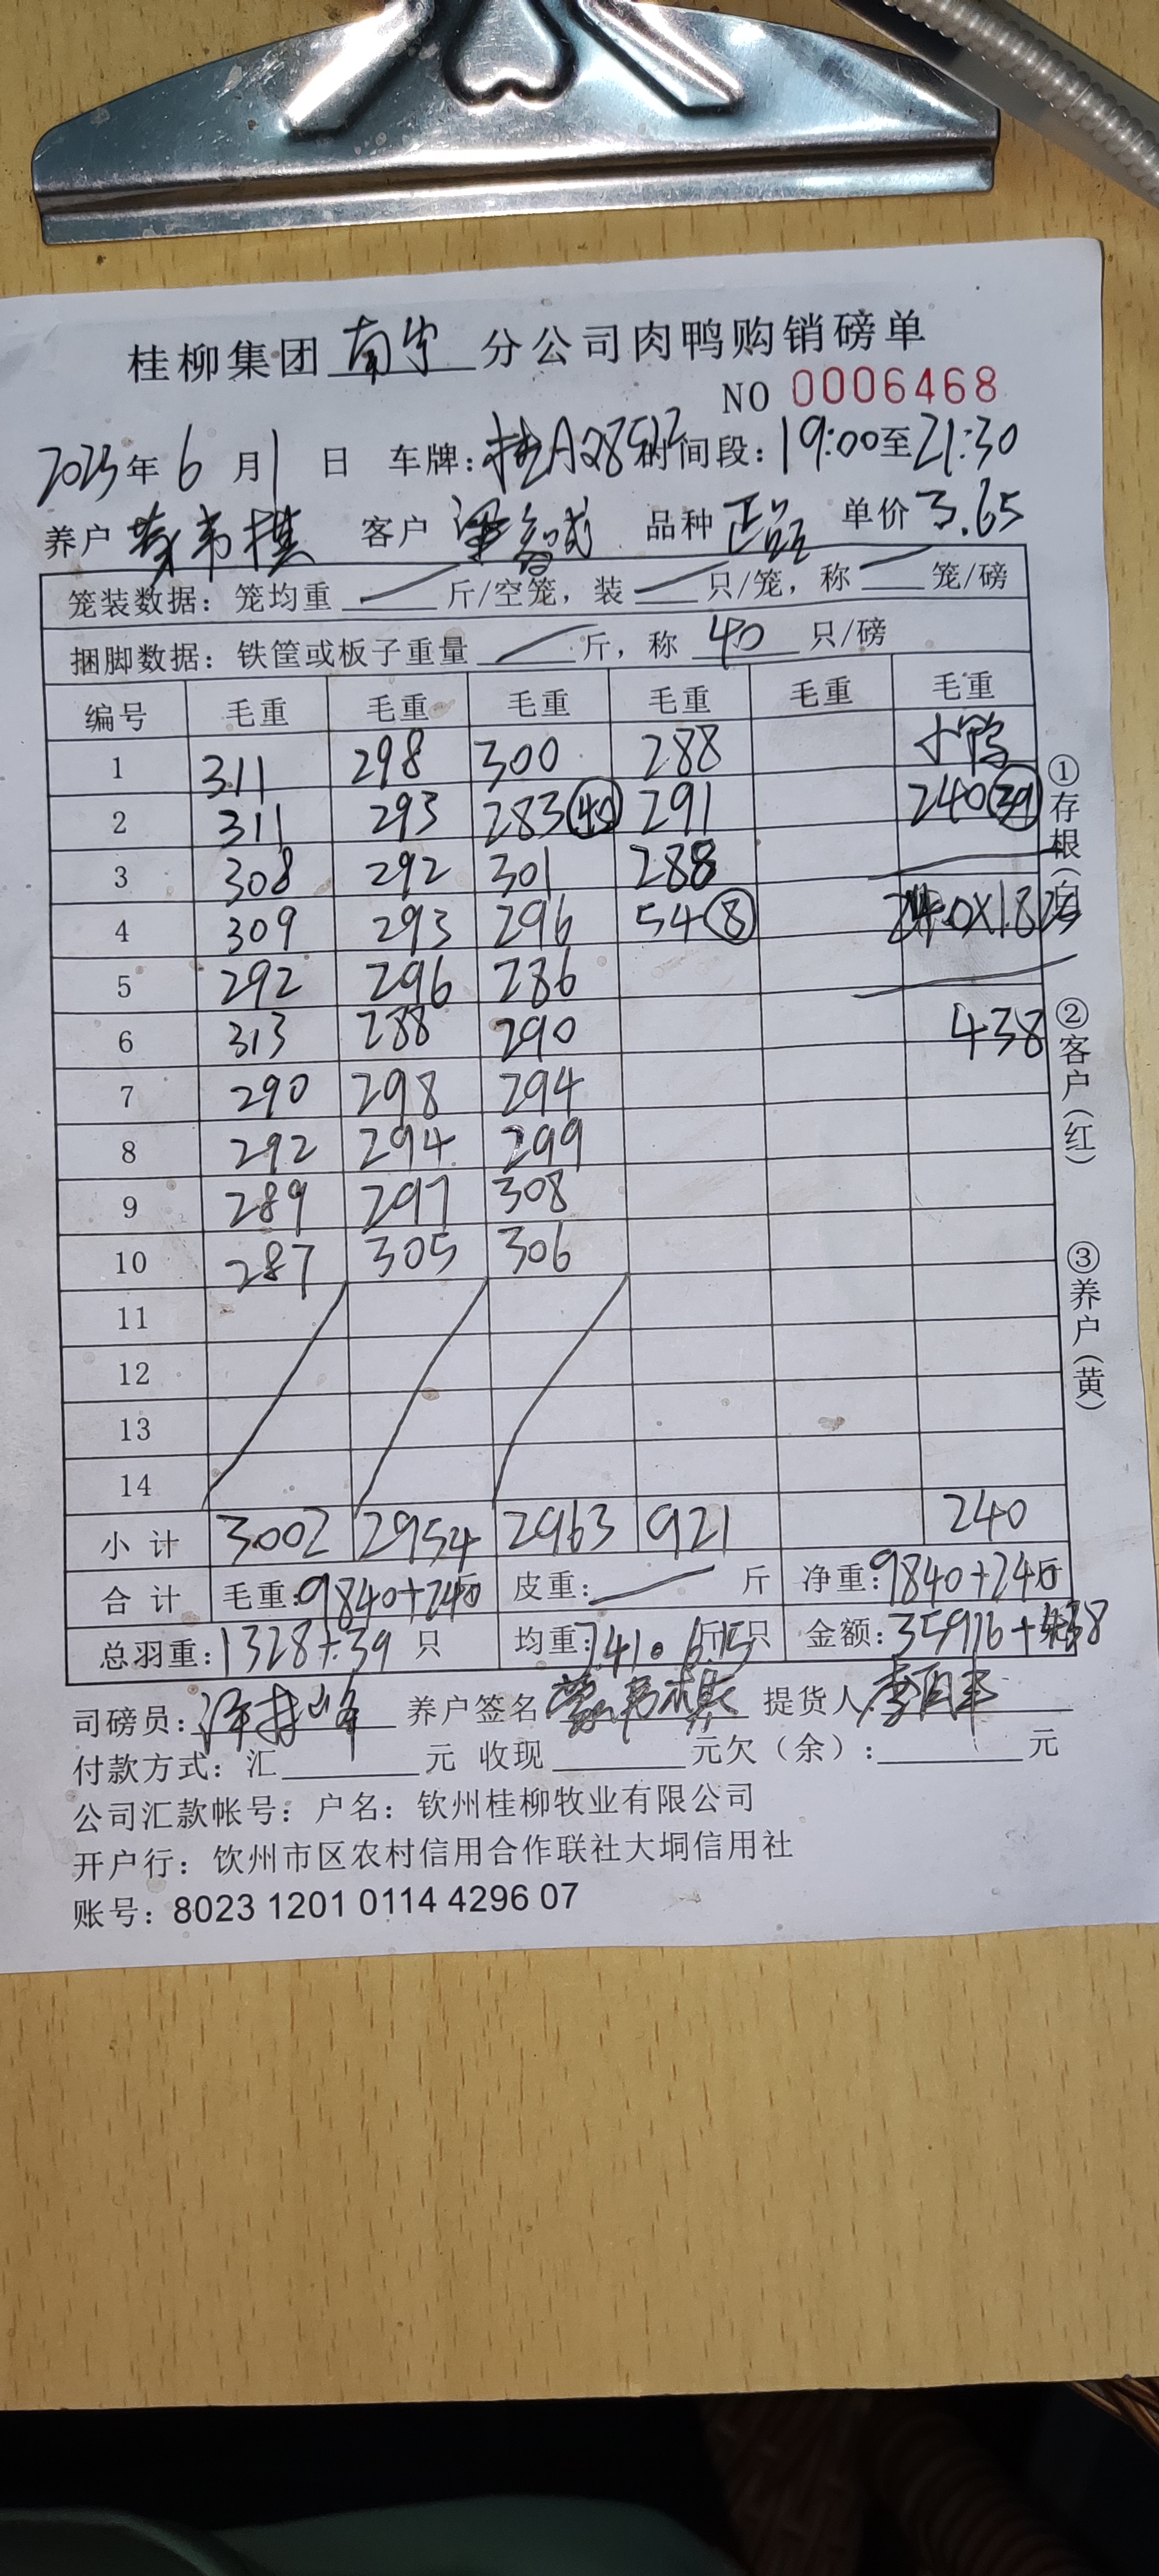 桂柳集团 南宁 分公司肉鸭购销磅单
NO 0006468
2023年 6 月 1 日 车牌: 桂A 时间段: 19:00至21:30
养户 客户 梁 品种 正品 单价 3.65
笼装数据: 笼均重 斤/空笼, 装 只/笼, 称 笼/磅
捆脚数据: 铁筐或板子重量 斤, 称 40 只/磅
编号 毛重 毛重 毛重 毛重 毛重 毛重
1 311 298 300 288 小鸭
2 311 293 283 291 240 39
3 308 292 301 288
4 309 293 296 54 8 240×1.825
5 292 296 286
6 313 288 290 438
7 290 298 294
8 292 294 299
9 289 297 308
10 287 305 306
11
12
13
14
小计 3002 2954 2963 921 240
合计 毛重: 9840+240 皮重: 斤 净重: 9840+240
总羽重: 1328+39 只 均重: 7.41 6.15 只 金额: 35916+438
司磅员: 养户签名 提货人:
付款方式: 汇 元 收现 元欠(余): 元
公司汇款帐号: 户名: 钦州桂柳牧业有限公司
开户行: 钦州市区农村信用合作联社大垌信用社
账号: 8023 1201 0114 4296 07
①存根(白)
②客户(红)
③养户(黄)